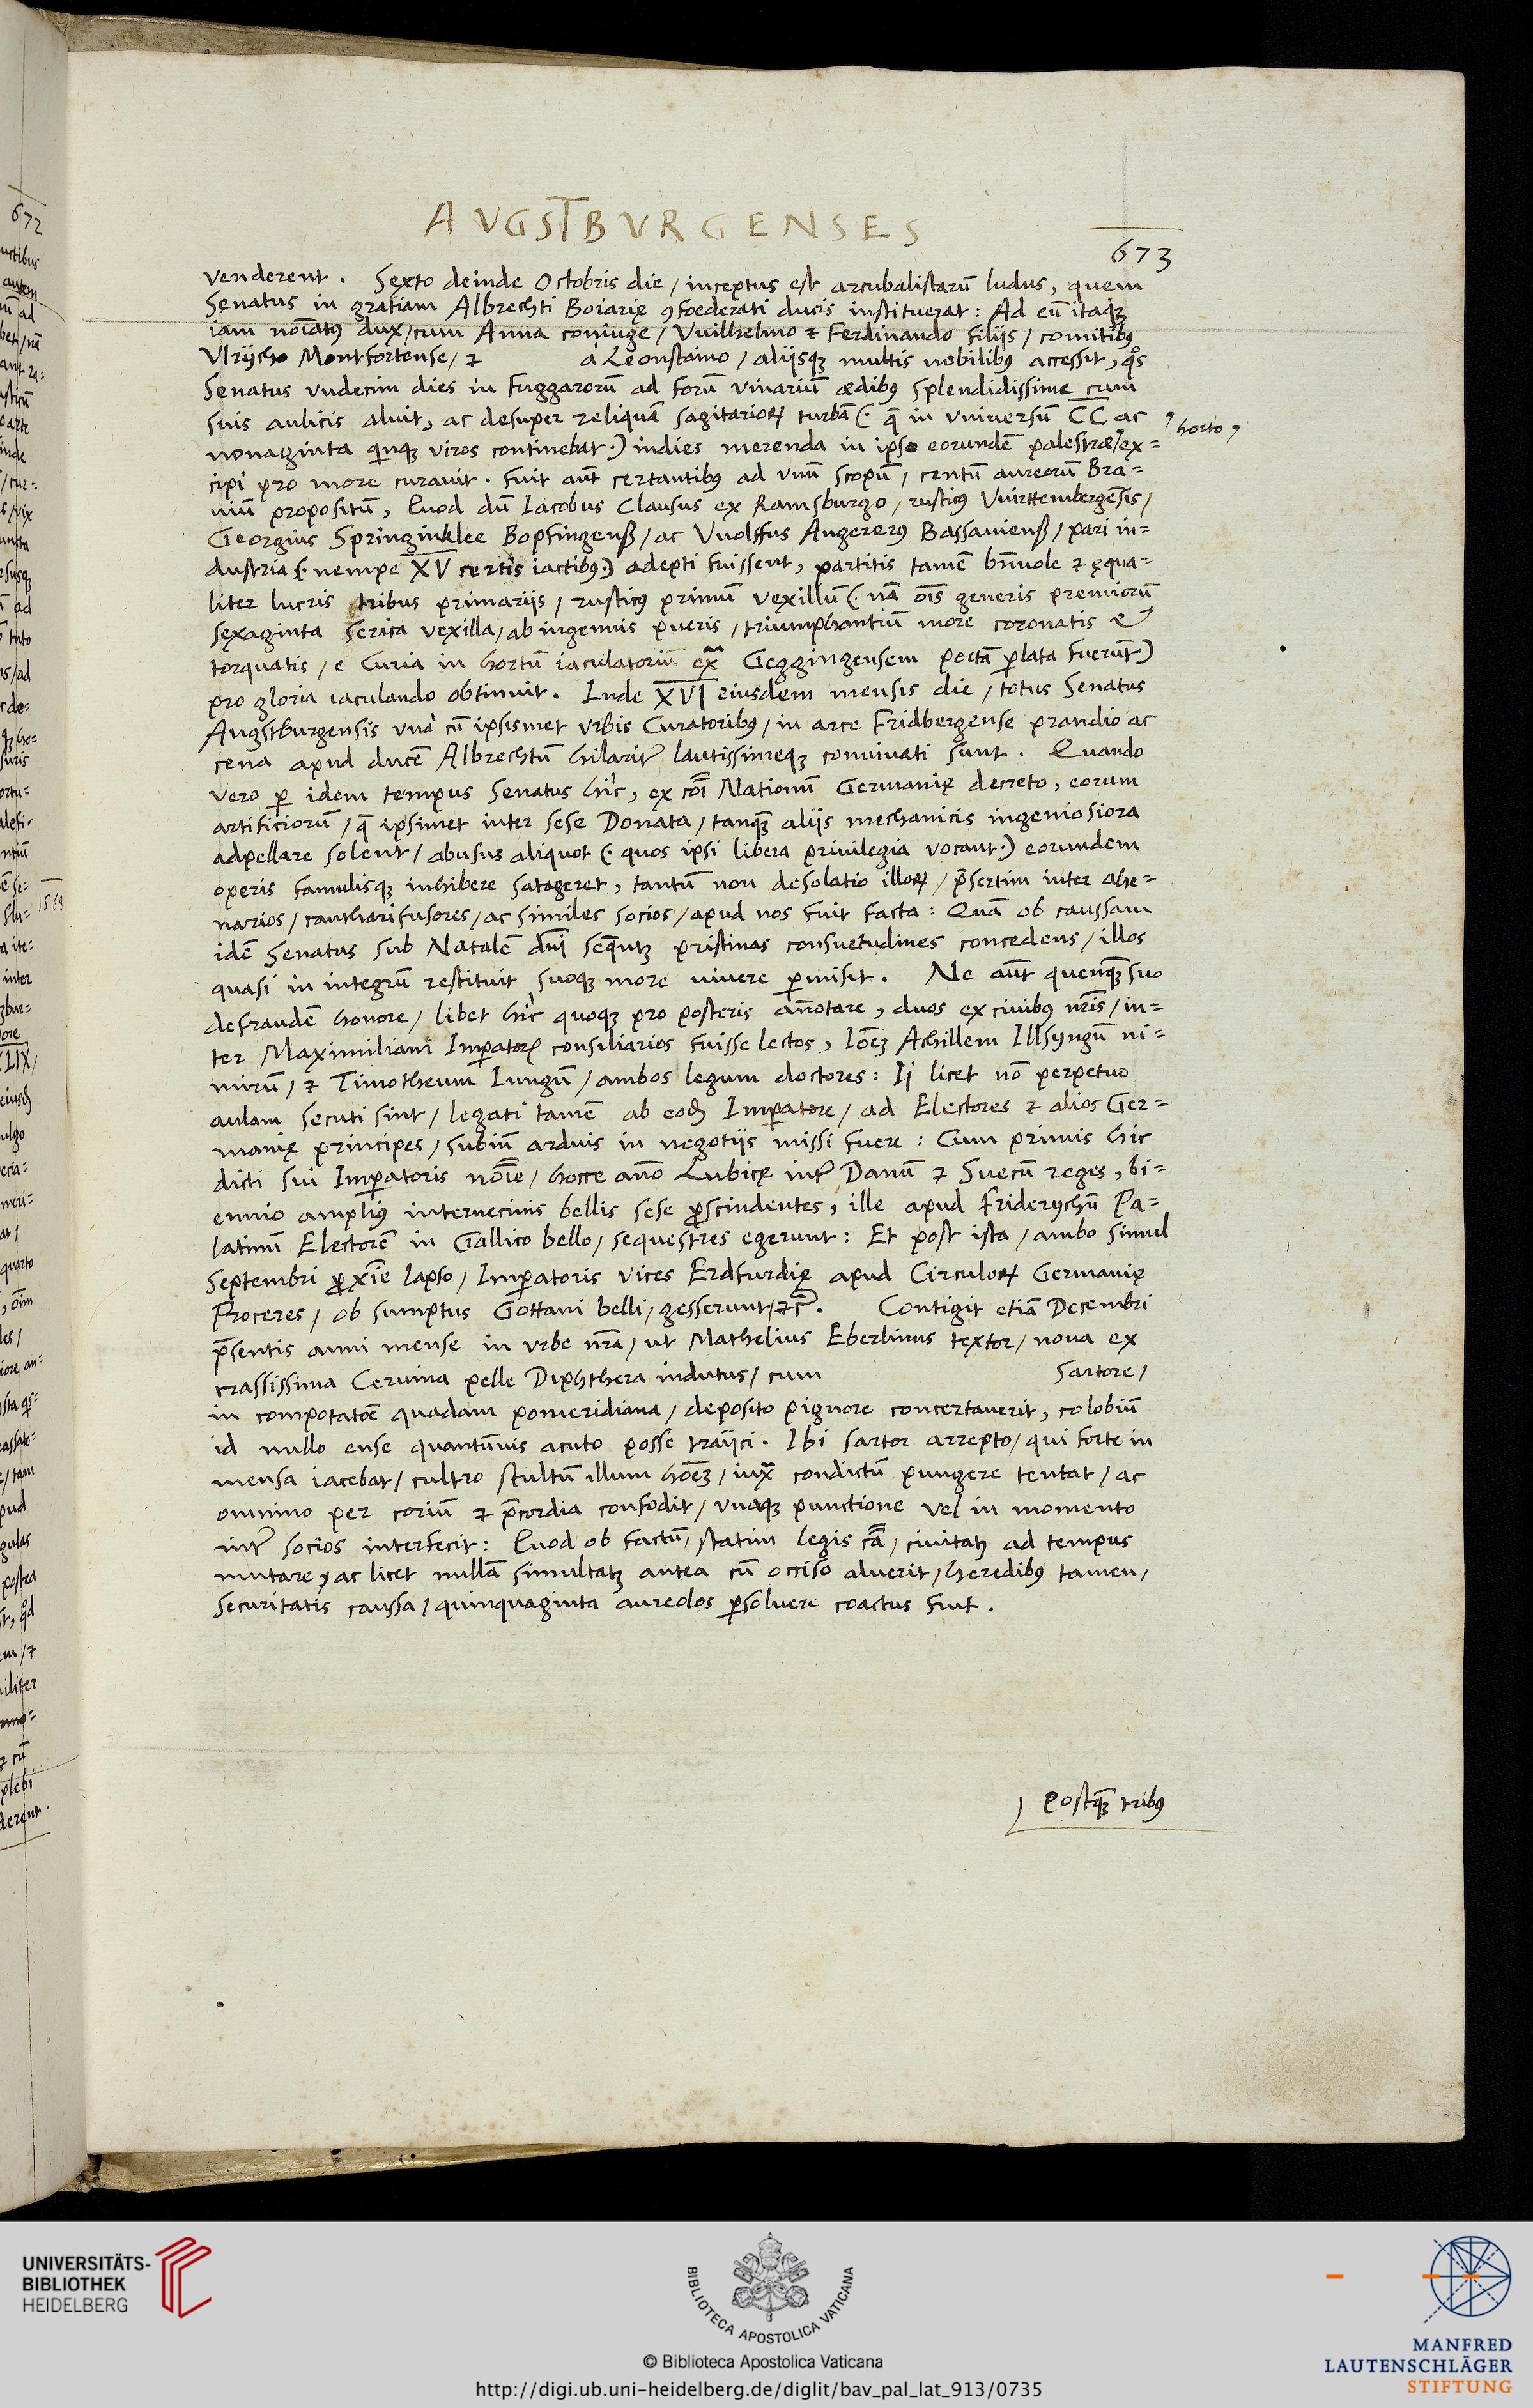 AVGSTBVRGENSES
673
venderent. Sexto deinde Octobris die / inceptus est arcubalistarū ludus, quem
Senatus in gratiam Albrechti Boiarię ꝯfoederati ducis instituerat: Ad eū itaqꝫ
iam noiatꝰ dux / cum Anna coniuge / Vuilhelmo ⁊ Ferdinando filijs / comitibꝰ
Vlrijcho Montfortense / ⁊ à Leonstaino / alijsqꝫ multis nobilibꝰ accessit, qͦs
Senatus vndecim dies in Fuggarorū ad forū vinariū ædibꝰ splendidissime cum
suis aulicis aluit, ac desuper reliquā sagitarioꝝ turbā (· q̄ in vniuersū C̄C̄ ac
nonaginta quinqꝫ viros continebat ·) indies merenda in ipso eorundē palestræ / ex-
horto
cipi pro more curauit. Fuit aūt certantibꝰ ad vnū scopū / centū aureorū Bra-
uiū propositū, Quod dū Iacobus Clausus ex Ramsburgo / rusticꝰ Vuirttembergēsis /
Georgius Springinklee Bopfingenß / ac Vuolffus Angererꝰ Bassauienß / pari in-
dustria (· nempe XV certis iactibꝰ ·) adepti fuissent, partitis tamē bn̄uole ⁊ ęqua-
liter lucris tribus primarijs / rusticꝰ primū vexillū (· nā oīs generis premiorū
sexaginta serica vexilla / ab ingenuis pueris / triumphantiū more coronatis &
torquatis / e Curia in hortū iaculatoriū exͣ Geggingensem portā ꝑlata fuerūt)
pro gloria iaculando obtinuit. Inde XVI eiusdem mensis die / totus Senatus
Augstburgensis vnà cū ipsismet vrbis Curatoribꝰ / in arce Fridbergense prandio ac
cena apud ducē Albrechtū hilarit̄ lautissimeqꝫ conuiuati sunt. Quando
vero ꝑ idem tempus Senatus hîc, ex cōi Nationū Germanię decreto, eorum
artificiorū / q̄ ipsimet inter sese Donata / tanqꝫ alijs mechanicis ingeniosiora
adpellare solent / abusus aliquot (· quos ipsi libera priuilegia vocant ·) eorundem
operis famulisqꝫ inhibere satageret, tantū non desolatio illoꝝ / p̄sertim inter ahe-
narios / cantharifusores / ac similes socios / apud nos fuit facta: Quā ob caussam
idē Senatus sub Natalē dn̄i seq̄ntꝫ pristinas consuetudines concedens / illos
quasi in integrū restituit suoqꝫ more viuere ꝑmisit. Ne aūt quenqꝫ suo
defraudē honore / libet hîc quoqꝫ pro posteris an̄otare, duos ex ciuibus nr̄is / in-
ter Maximiliani Imꝑatoris consiliarios fuisse lectos, Ioēꝫ Achillem Illsyngū ni-
mirū / ⁊ Timotheum Iungū / ambos legum doctores: Ij licet nō perpetuo
aulam secuti sint / legati tamē ab eodem Imꝑatore / ad Electores ⁊ alios Ger-
manię principes / subiū arduis in negotijs missi fuere: Cum primis hic
dicti sui Imꝑatoris nōīe / hocce an̄o Lubicę int̄ Danū ⁊ Suecū reges, bi-
ennio ampliꝰ internecinis bellis sese ꝓscindentes, ille apud Friderychū Pa-
latinū Electorē in Gallico bello / sequestres egerunt: Et post ista / ambo simul
Septembri ꝓxīe lapso / Imꝑatoris vices Erdfurdię apud Circuloꝝ Germanię
Proceres / ob sumptus Gottani belli / gesserunt / ⁊c̄. Contigit etiā Decembri
p̄sentis anni mense in vrbe nr̄a / ut Mathelius Eberlinus textor / noua ex
crassissima Ceruina pelle Diphthera indutus / cum Sartore /
in compotatōe quadam pomeridiana / deposito pignore concertauerit, colobiū
id nullo ense quantūuis acuto posse traijci. Ibi sartor arrepto / qui forte in
mensa iacebat / cultro stultū illum hoēꝫ / iuxͣ condictū pungere tentat / ac
omnino per coriū ⁊ p̄cordia confodit / vnaqꝫ punctione vel in momento
int̄ socios interfecit: Quod ob factū / statim legis cā / ciuitatꝫ ad tempus
mutare, ac licet nullā simultatꝫ antea cū occiso aluerit / heredibꝰ tamen /
securitatis caussa / quinquaginta aureolos ꝑsoluere coactus fuit.
Postqꝫ tribꝰ
UNIVERSITÄTS-
BIBLIOTHEK
HEIDELBERG
BIBLIOTECA APOSTOLICA VATICANA
© Biblioteca Apostolica Vaticana
http://digi.ub.uni-heidelberg.de/diglit/bav_pal_lat_913/0735
MANFRED
LAUTENSCHLÄGER
STIFTUNG